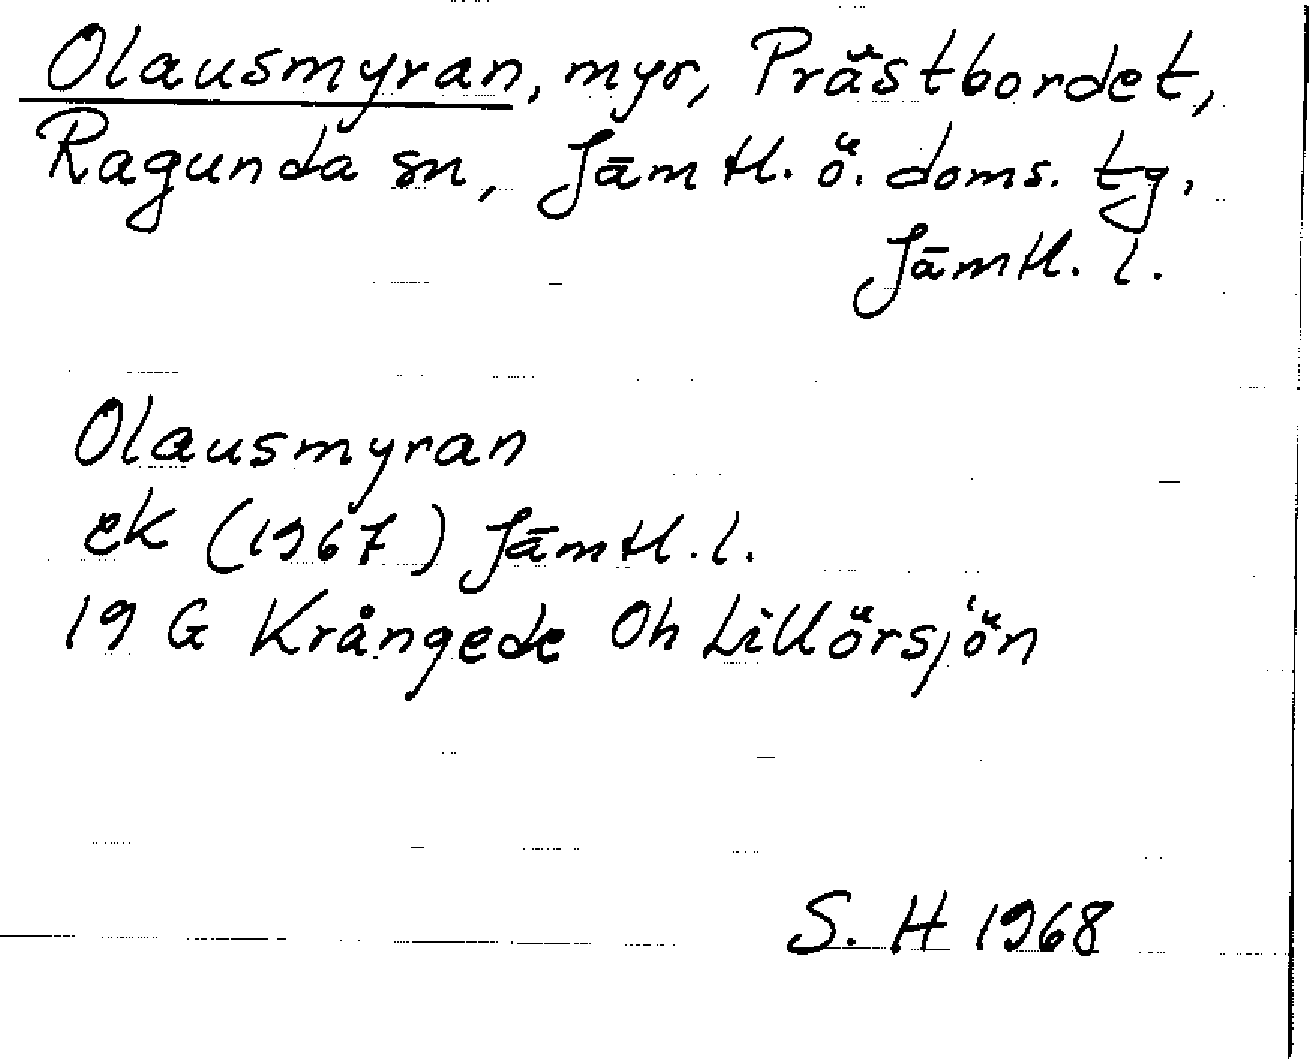 Olausmyran, myr, Prästbordet,
Ragunda sn, Jämtl. ö. doms. tg.
Jämtl. l.
Olausmyran
ek (1967) Jämtl. l.
19 G Krångede Oh Lillörsjön
S. H 1968